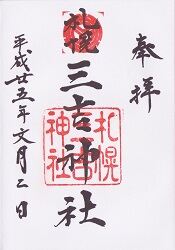 奉拝
札幌
三吉神社
札幌
三吉
神社
平成廿五年文月二日